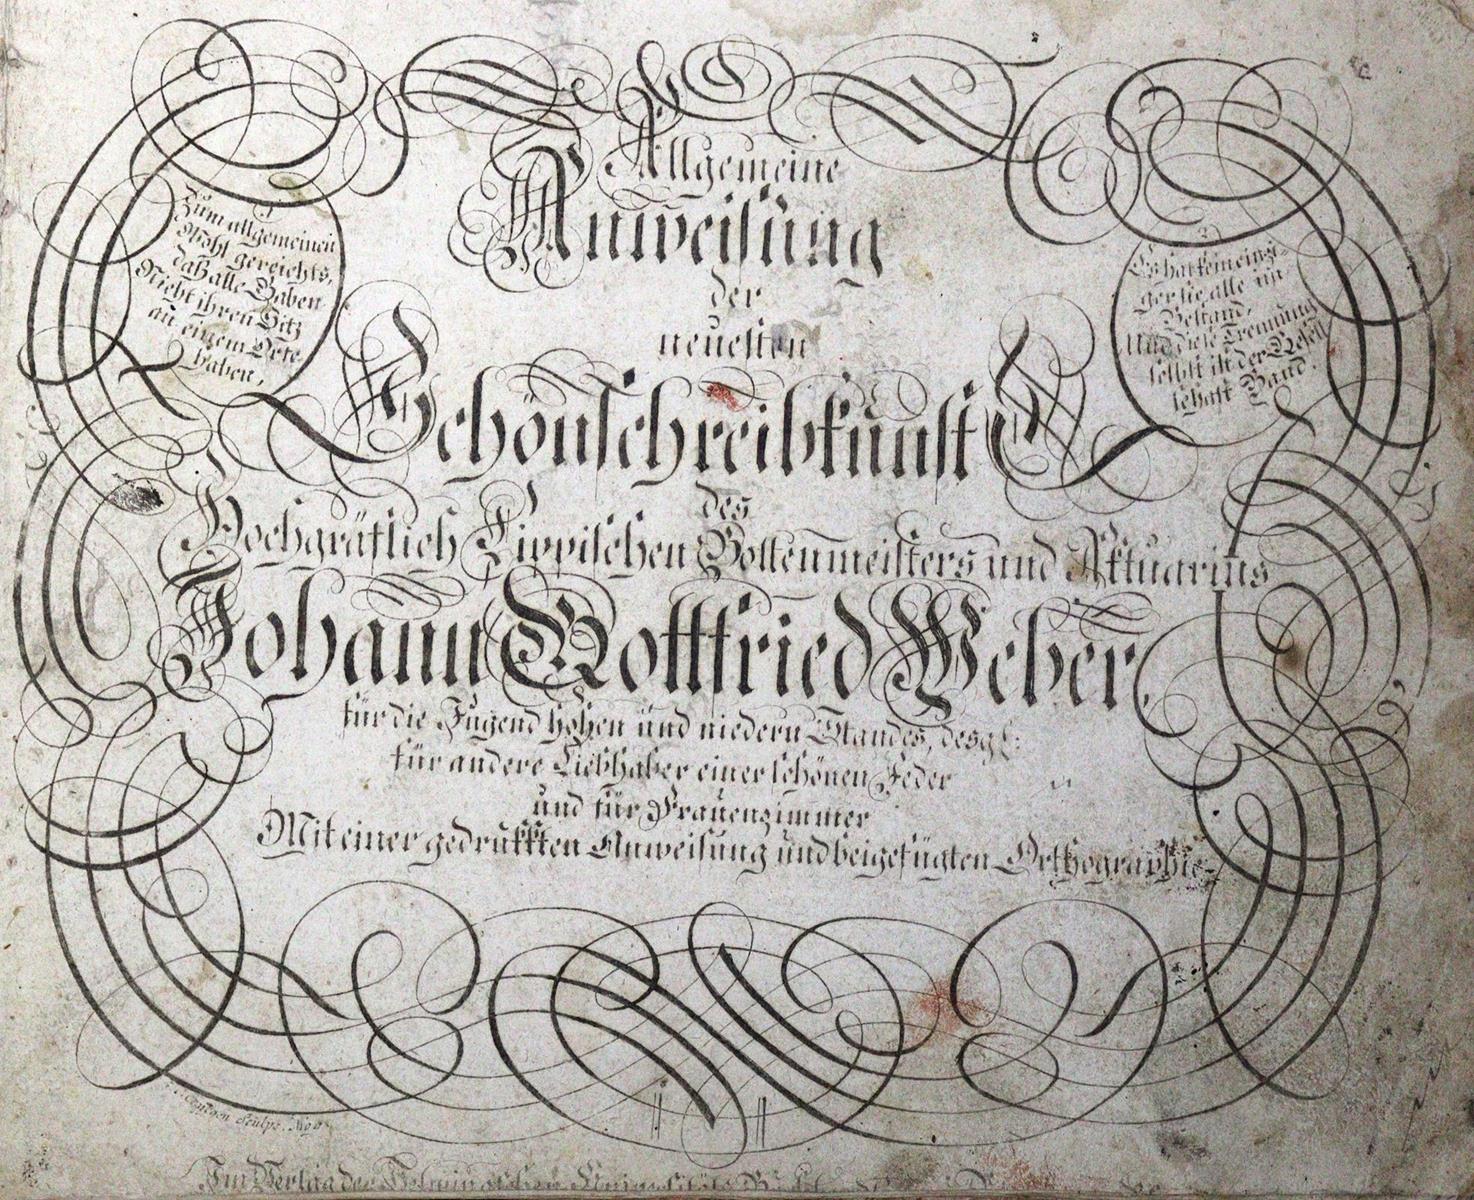 Allgemeine
Anweisung
der
neuesten
Schönschreibkunst
des
Hochgräflich Lippischen Bottenmeisters und Aktuarius
Johann Gottfried Weber,
für die Jugend hohen und niedern Standes, desgl:
für andere Liebhaber einer schönen Feder
und für Frauenzimmer
Mit einer gedrukkten Anweisung und beigefügten Orthographie.
1
Zum allgemeinen
Wohl gereichts,
daß alle Gaben
Nicht ihren Sitz
an einem Orte
haben,
2
Es hat kein einzi-
ger sie alle in
Bestand,
Und diese Trennung
selbst ist der Gesell
schaft Band.
sculps.
Im Verlag der